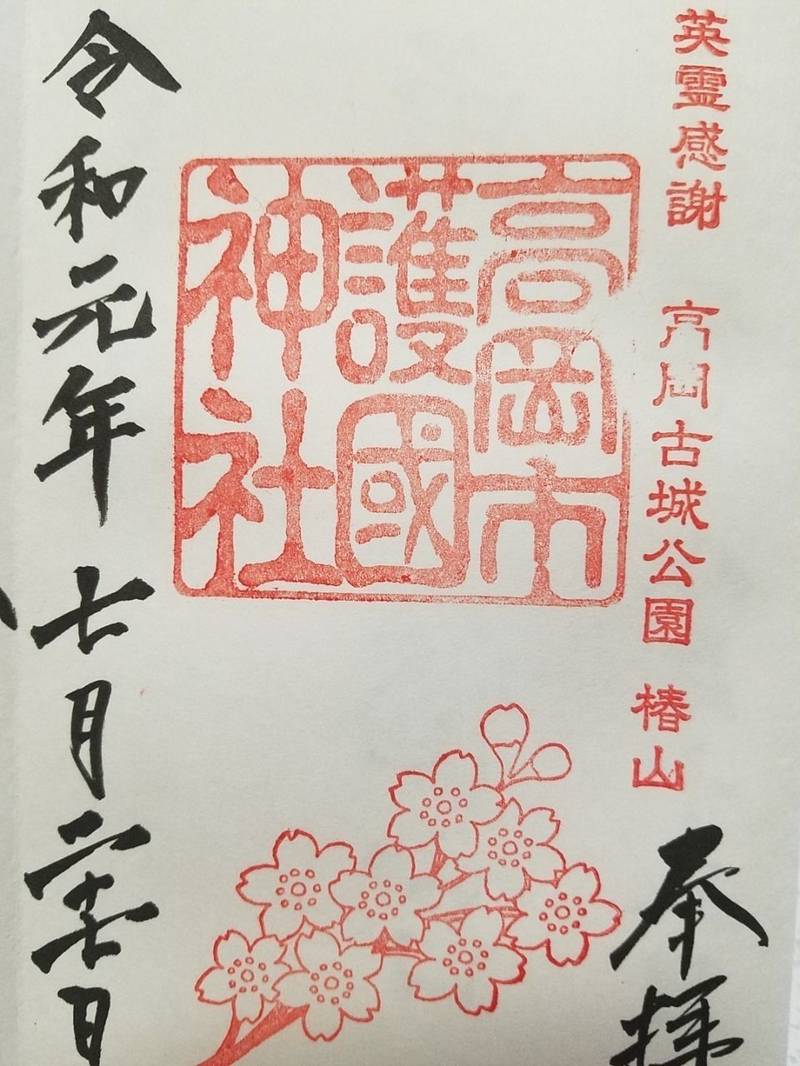 英霊感謝　高岡古城公園　椿山
奉拝
高岡市
護國
神社
令和元年七月二十日